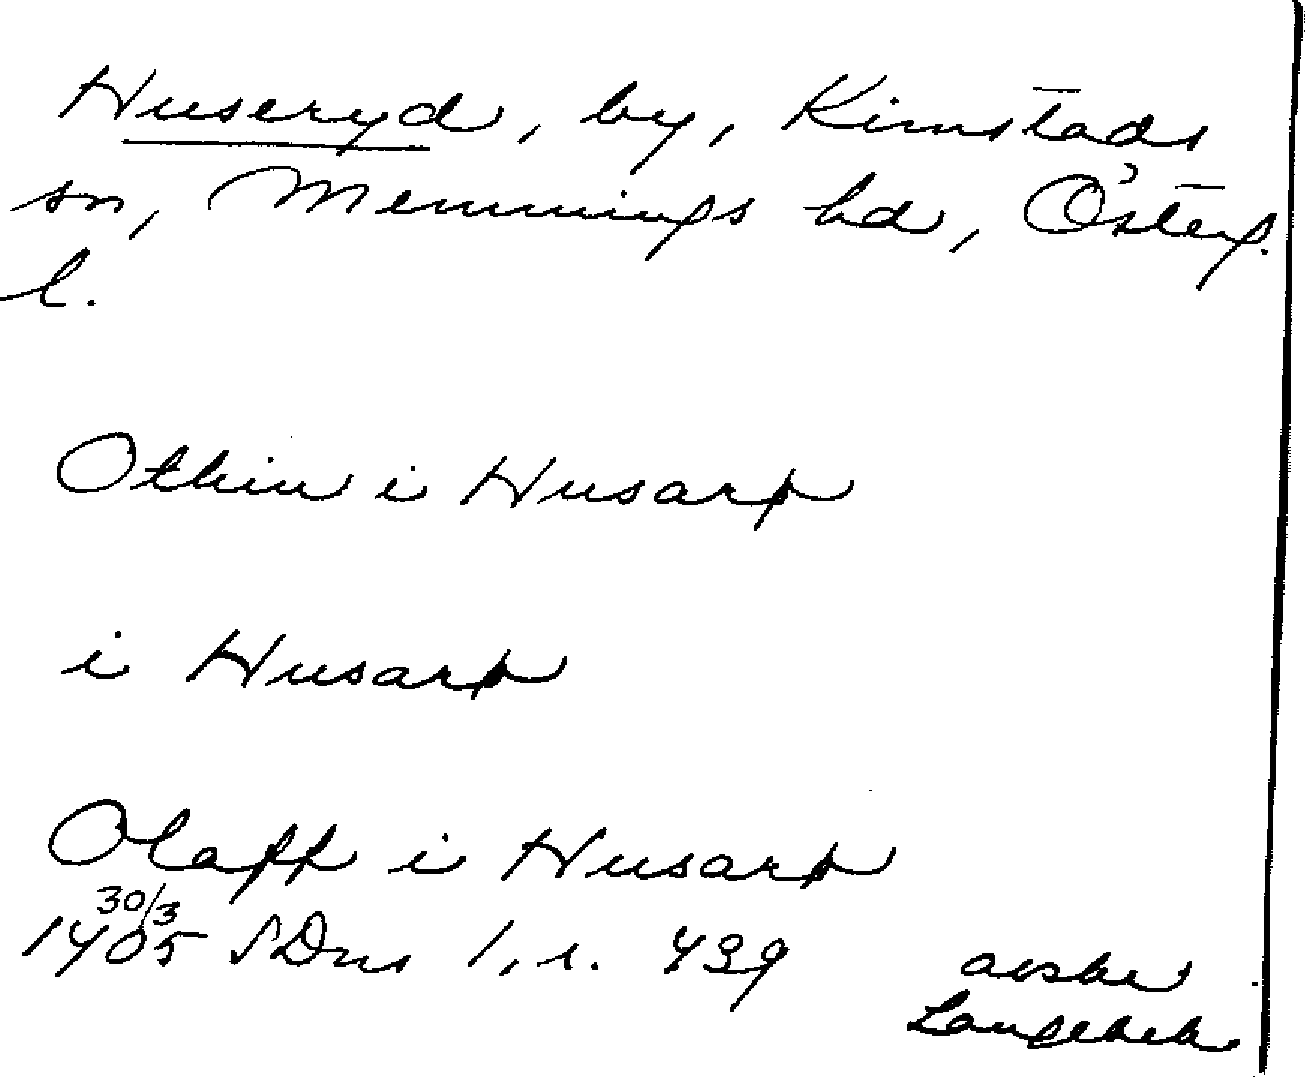 Huseryd, by, Kimstads
sn, Memmings hd, Österg.
l.
Othin i Husarp
i Husarp
Olaff i Husarp
30/3
1405 SDns 1, s. 439
avskr
Langebek